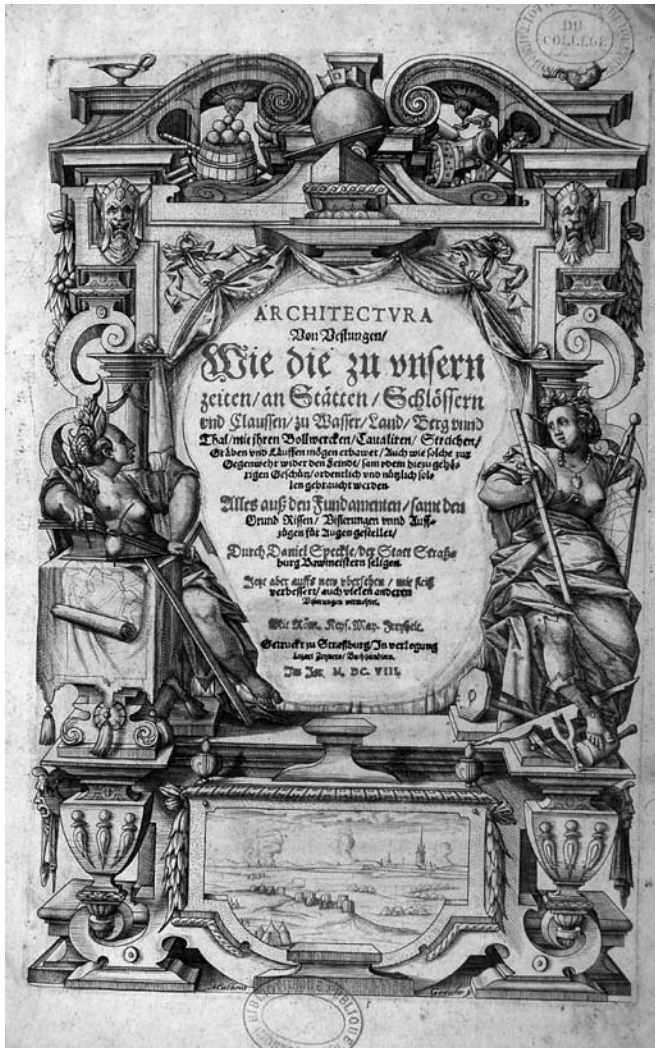 DU
COLLEGE
ARCHITECTVRA
Von Vestungen/
Wie die zu vnsern
zeiten/ an Stätten/ Schlössern
vnd Claussen/ zu Wasser/ Land/ Berg vnnd
Thal/ mit jhren Bollwercken/ Caualiren/ Streichen/
Gräben vnd Läuffen mögen erbawet/ Auch wie solche zur
Gegenwehr wider den Feindt/ sam vdem hiezu gehö-
rigen Geschütz/ ordentlich vnd nützlich sol-
len gebraucht werden.
Alles auß den Fundamenten/ samt den
Grund Rissen/ Visierungen vnnd Auff-
zügen für Augen gestellet/
Durch Daniel Speckle/ der Statt Straß-
burg Bawmeistern seligen.
Jetzt aber auffs new vbersehen/ mit fleiß
verbessert/ auch vielen anderen
Visierungen vermehret.
Mit Röm. Keys. May. Freyheit.
Getruckt zu Straßburg/ In verlegung
Lazari Zetzners/ Buchhändlers.
Im Jar M. DC. VIII.
BIBLIOTHEQUE PUBLIQUE